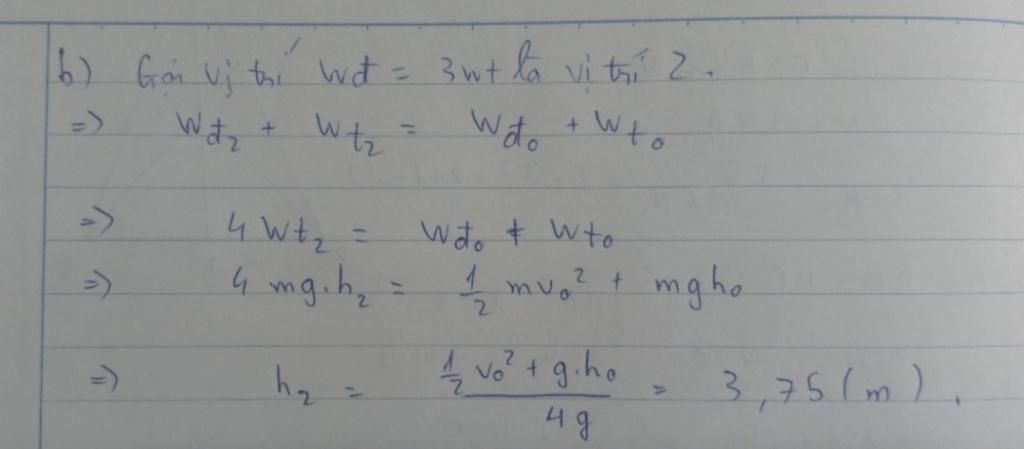 b) Gọi vị trí Wđ = 3wt là vị trí 2.
=> Wđ₂ + Wt₂ = Wđ₀ + Wt₀
=> 4 Wt₂ = Wđ₀ + Wt₀
=> 4 mg.h₂ = 1/2 mv₀² + mgh₀
=> h₂ = (1/2 v₀² + g.h₀)/4g = 3,75 (m).